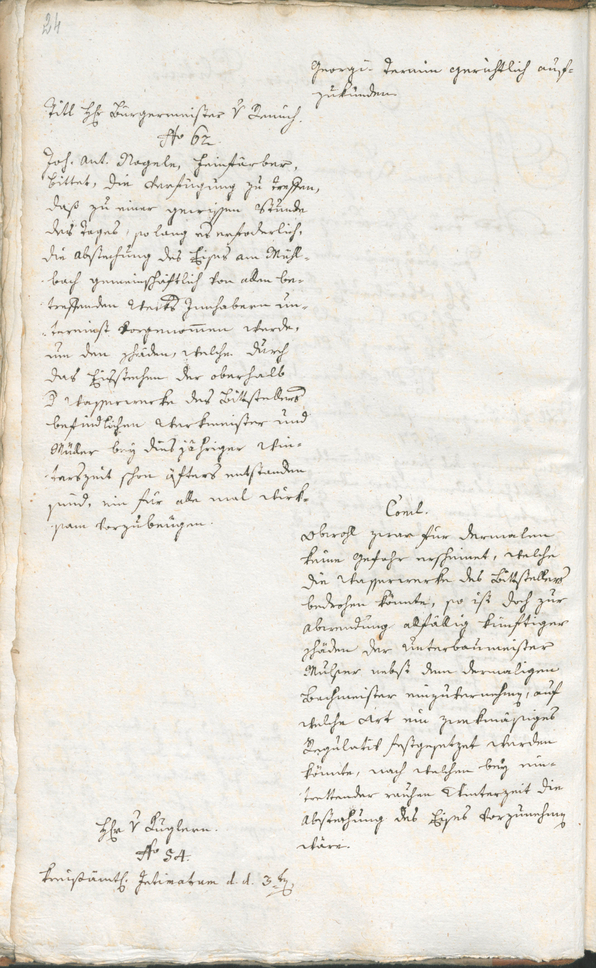 24
Georgi-Termin gerichtlich auf-
zukünden.
Titl Hr Burgermeister v
No 62.
Joh. Ant. Nagele, Feinfärber,
bittet, die Verfügung zu treffen,
daß zu einer gewissen Stunde
des Tages, so lang es erforderlich,
die Abstechung des Eises am Mühl-
bach gemeinschäftlich von allen be-
treffenden Werks Innhabern un-
ternimst vorgenommen werde,
um den Schäden, welche durch
das Eisstechen der oberhalb
d Wasserwerke des Bittstellers
befindlichen Werkmeister und
Müller bey dies jähriger Win-
terszeit schon öfters entstanden
sind, ein für alle mal wirk-
sam vorzubeugen.
Concl.
Obwohl zwar für dermalen
keine Gefahr erscheinet, welche
die Wasserwerke des Bittstellers
bedrohen könnte, so ist doch zur
Abwendung allfällig künftiger
Schäden der Unterbaumeister
nebst dem dermaligen
Bachmeister einzuvernehmen, auf
welche Art ein zwekmäsiges
Regulativ festgesetzet werden
könnte, nach welchem bey ein-
trettender rauhen Winterzeit die
Abstechung des Eises vorzunehmen
wäre.
Hr v Kuglern.
No 54.
Kreisämtl. Intimatum d. d. 3